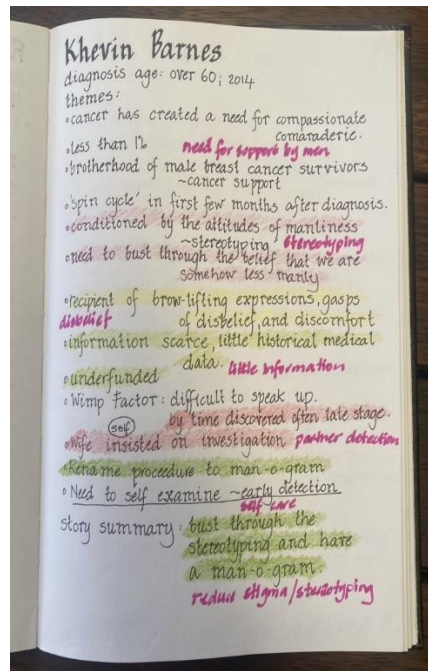 Khevin Barnes
diagnosis age: over 60; 2014
themes:
•cancer has created a need for compassionate
comaraderie.
•less than 1% need for support by men
•brotherhood of male breast cancer survivors
~cancer support
•'spin cycle' in first few months after diagnosis.
•conditioned by the attitudes of manliness
~stereotyping stereotyping
•need to bust through the belief that we are
somehow less manly
•recipient of brow-lifting expressions, gasps
disbelief of disbelief, and discomfort
•information scarce, little historical medical
data. little information
•underfunded
•Wimp Factor: difficult to speak up.
by time discovered often late stage.
self
•Wife insisted on investigation partner detection
•Rename proceedure to man-o-gram
•Need to self examine ~early detection
self care
story summary: bust through the
stereotyping and have
a man-o-gram.
reduce stigma/stereotyping